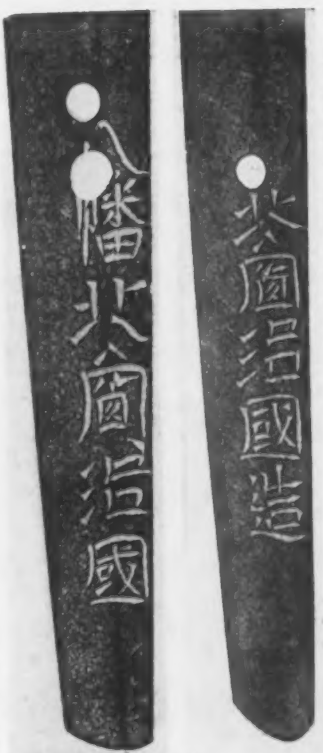 北窗治國造
八幡北窗治國